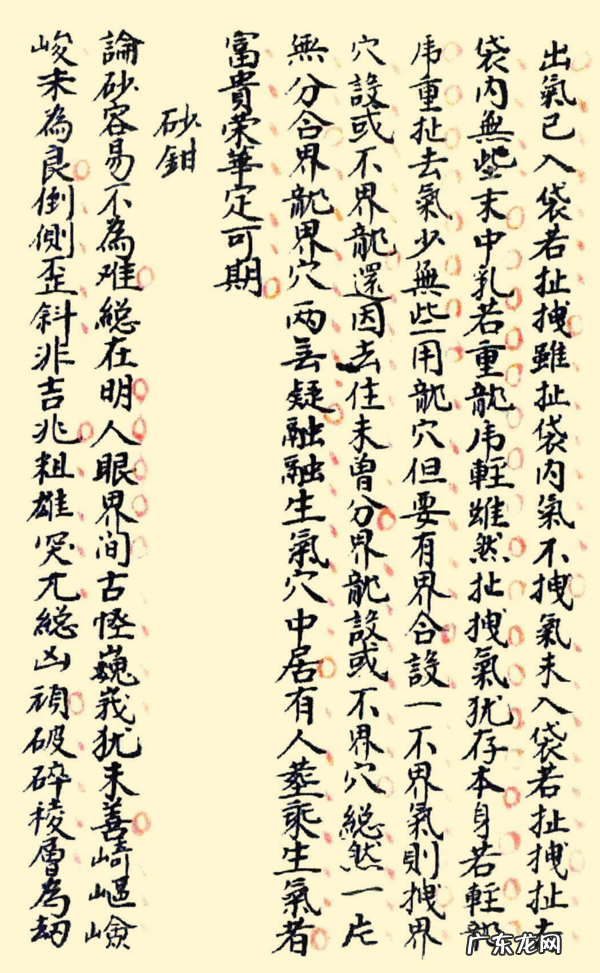 出氣已入袋若扯拽雖扯袋内氣不拽氣未入袋若扯拽扯在
袋内無些末中乳若重龍乕輊雖然扯拽氣犹存本身若輊
乕重扯去氣少無些用龍穴但要有界合設一不界氣則拽界
穴設或不界龍還因去住未曾分界龍設或不界穴緫然一片
無分合界龍界穴両無疑融融生氣穴中居有人塟乘生氣者
富貴荣華定可期
砂鉗
論砂容易不為难緫在明人眼界间古怪巍峩犹未善崎嶇嶮
峻未為良倒側歪斜非吉兆粗雄突兀緫凶頑破碎稜層為劫
广东龙网